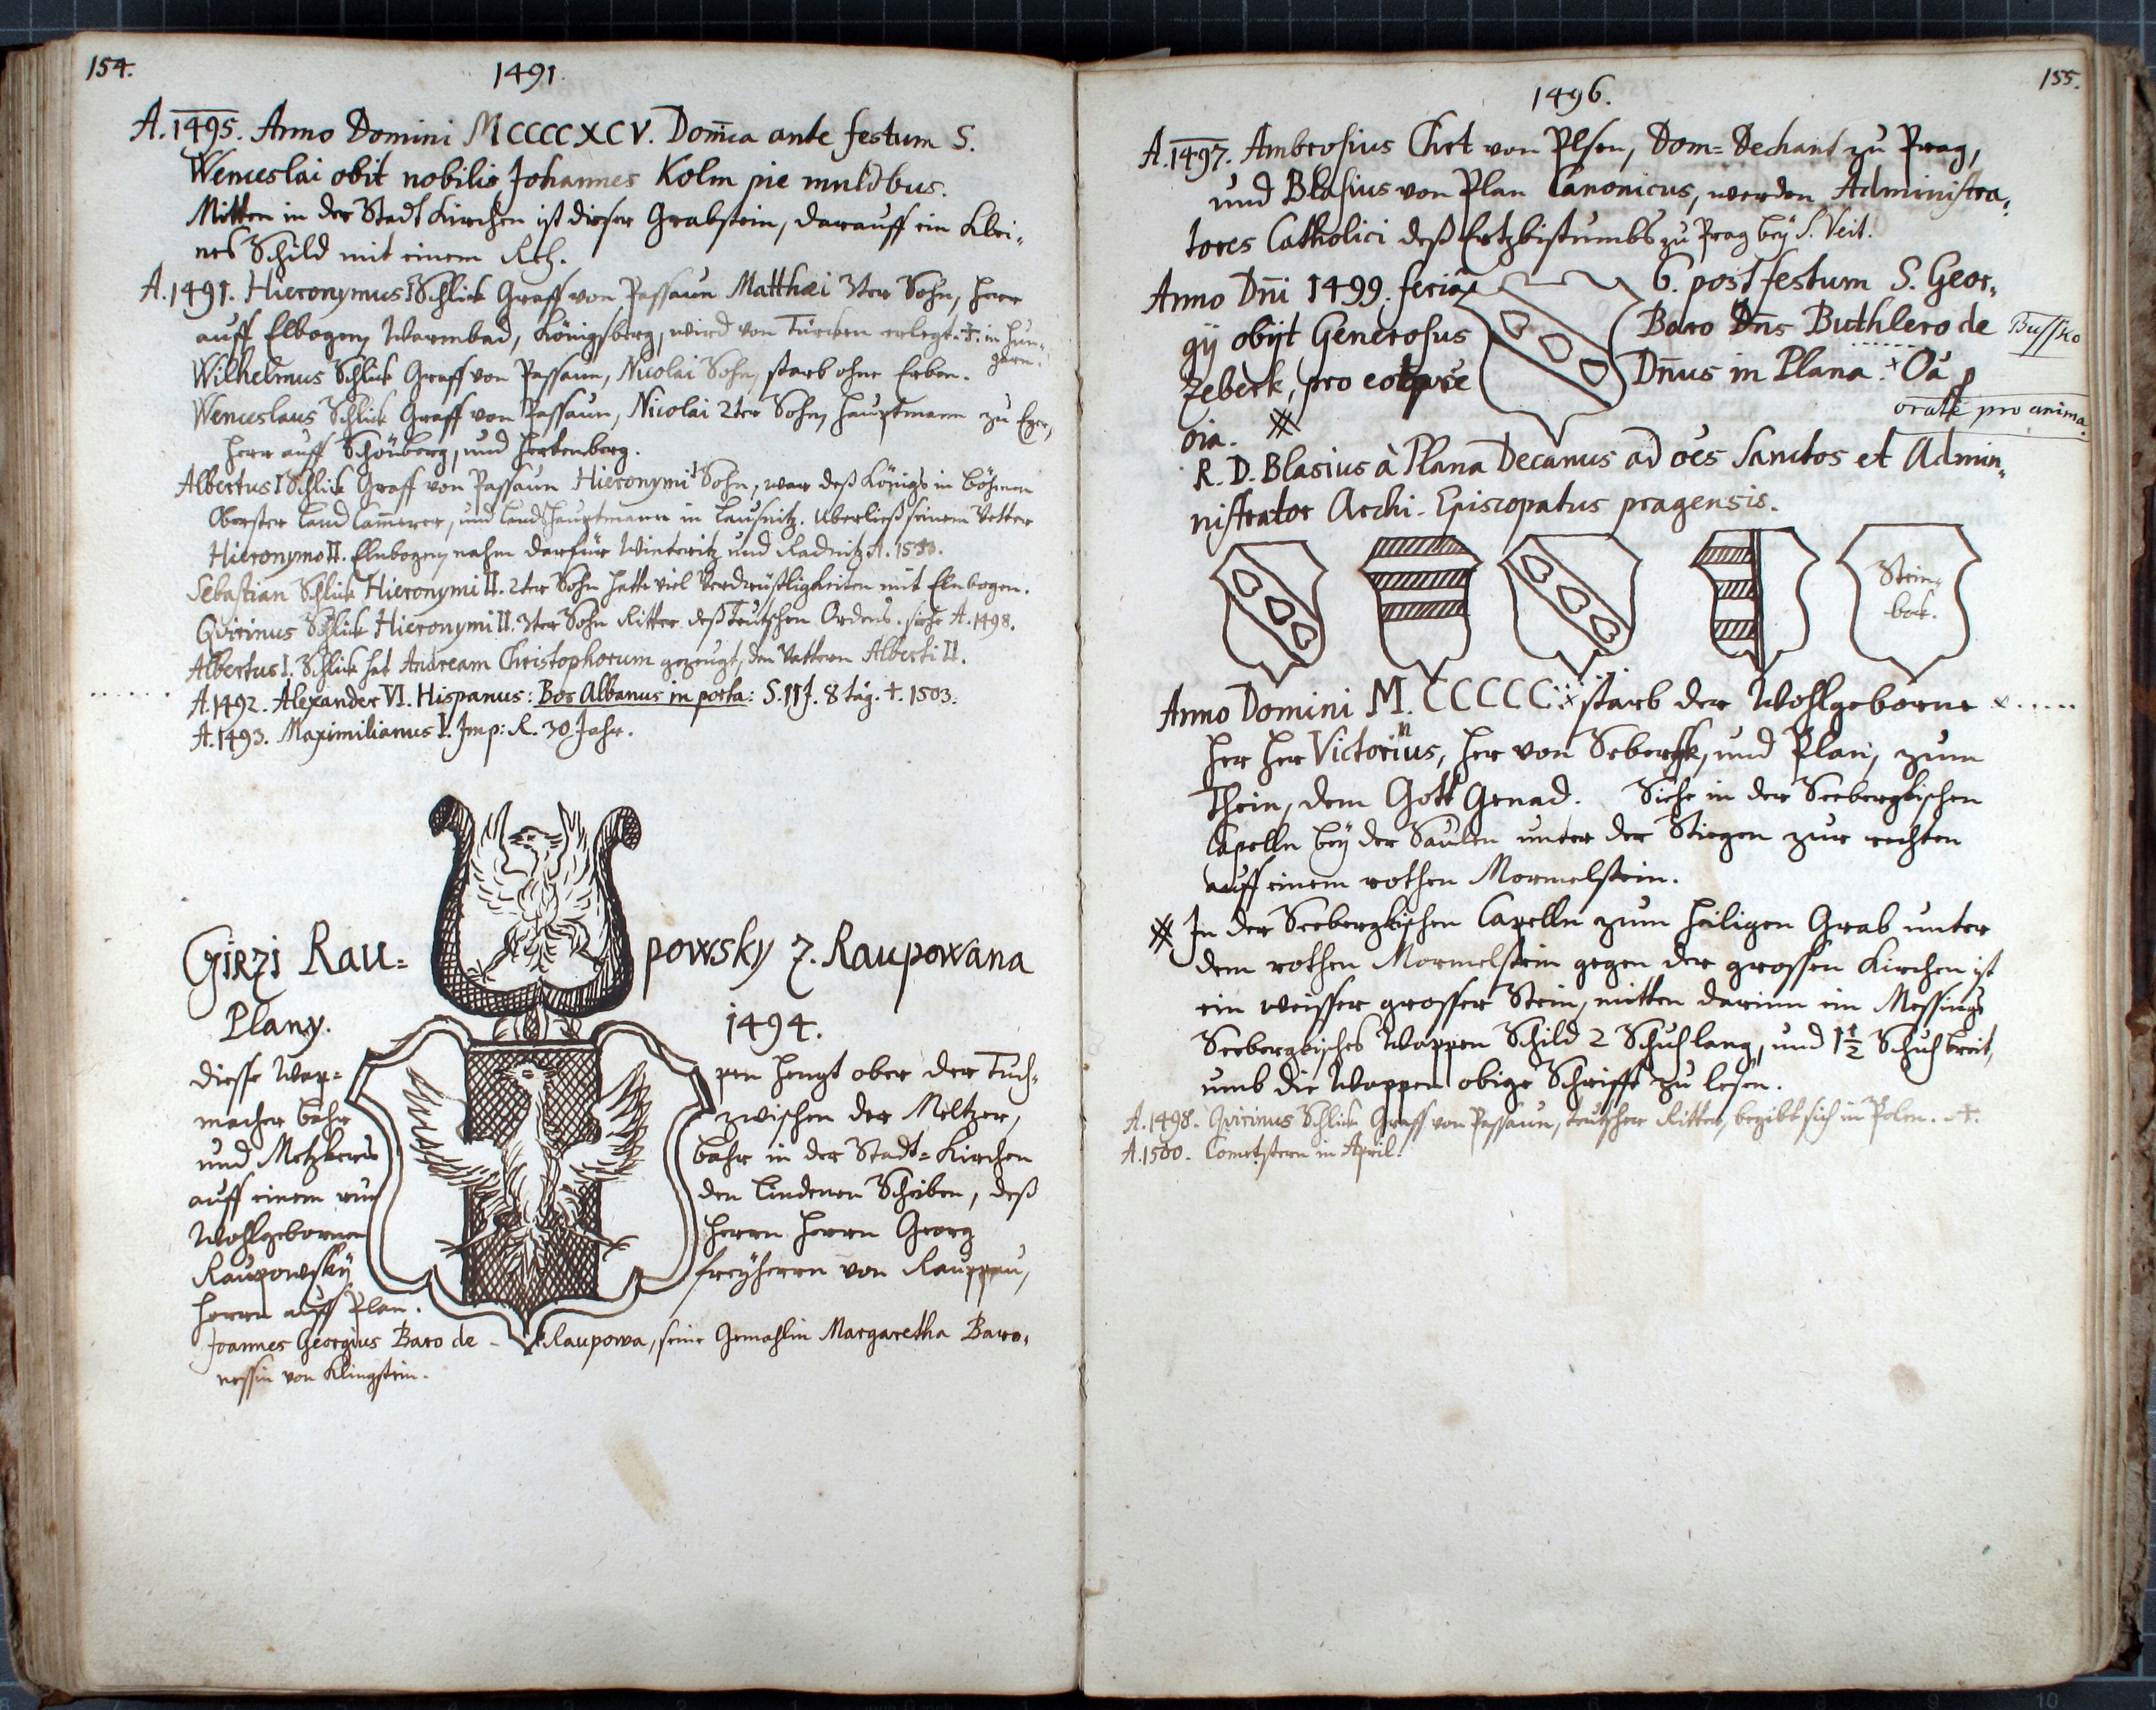 154.
1491.
A. 1495. Anno Domini MCCCCXCV. Dom̄ca ante festum S.
Wenceslai obit nobilis Johannes Kolm pie
Mitten in der Stadt Kirchen ist dieser Grabstein, darauff ein klei-
nes Schild mit einem Reh.
A. 1491. Hieronymus I Schlick Graff von Passaun Matthæi 3ter Sohn, Herr
auff Elbogen, Warmbad, Königsberg, wird von Türcken erlegt. †. in Hun-
garn.
Wilhelmus Schlick Graff von Passaun, Nicolai Sohn, starb ohne Erben.
Wenceslaus Schlick Graff von Passaun, Nicolai 2ter Sohn, Hauptmann zu Eger,
Herr auff Schönberg, und
Albertus I Schlick Graff von Passaun Hieronymi I Sohn, war deß Königs in Böhmen
Obrister Land Cam̄erer, und Landshauptmann in Lausnitz. Uberließ seinem Vetter
Hieronymo II. Elnbogen, nahm darfür Winteritz und Radnitz A.
Sebastian Schlick Hieronymi II. 2ter Sohn hatte viel Verdrüßligkeiten mit Elnbogen.
Qvirinus Schlick Hieronymi II. 3ter Sohn Ritter deß Teutschen Ordens. siehe A. 1498.
Albertus I. Schlick hat Andream Christophorum gezeugt, den Vattern Alberti II.
A. 1492. Alexander VI. Hispanus: Bos Albanus in porta: S. 11 J. 8 täg. †. 1503.
A. 1493. Maximilianus I. Imp: R. 30 Jahr.
Girzi Rau= powsky z. Raupowana
Plany. 1494.
Diesse Wap= pen hengt ober der Tuch-
macher bahr zwischen der Meltzer,
und Metzkers bahr in der Stadt=Kirchen
auff einem run den lindenen Scheiben, deß
Wohlgebornen Herrn Herrn Georg
Raupowskÿ freÿherrn von Rauppau,
Herrn auff Plan.
Joannes Georgius Baro de - Raupowa, seine Gemahlin Margaretha Baro-
nessin von Klingstein.
155.
1496.
A. 1497. Ambrosius Chrt von Plsen, Dom=Dechant zu Prag,
und Blasius von Plan Canonicus, werden Administra-
tores Catholici deß Ertzbistumbs zu Prag beÿ S. Veit.
Anno Dn̄i 1499. feria 6. post festum S. Geor-
gÿ obÿt Generosus Baro Dn̄s Buthlero de Bussko
Zeberk, pro Dn̄us in Plana. Oā p
orate pro anima.
oia.
R. D. Blasius à Plana Decanus ad oēs Sanctos et Admin-
nistrator Archi-Episcopatus pragensis.
Stein-
bock.
Anno Domini M. CCCCC. starb der Wohlgeborne
Her Her Victorinus, Her von Sebergk, und Plan, zum
Thein, dem Gott Genad. Siehe in der Seebergkischen
Capelln beÿ der Saulen unter der Stiegen zur rechten
auff einem rothen Mormelstein.
In der Seebergkischen Capelln zum Heiligen Grab unter
dem rothen Mormelstein gegen der grossen Kirchen ist
ein weisser grosser Stein, mitten darinn im Messings
Seebergkisches Wappen Schild 2 Schuh lang, und 1 1/2 Schuh breit,
umb die Wappen obige Schrifft zu lesen.
A. 1498. Qvirinus Schlick Graff von Passaun, teutscher Ritter, begibt sich in Polen. †.
A. 1500. Cometstern in April.